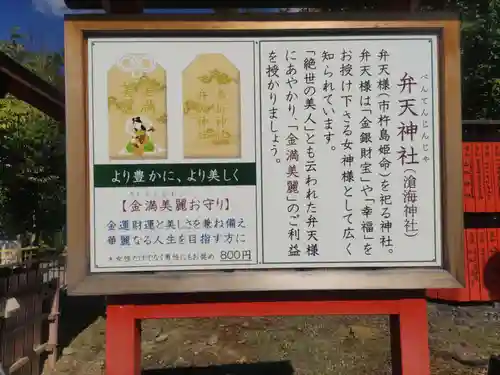 弁天神社(滄海神社)
べんてんじんじゃ
弁天様(市杵島姫命)を祀る神社。
弁天様は「金銀財宝」や「幸福」を
お授け下さる女神様として広く
知られています。
「絶世の美人」とも云われた弁天様
にあやかり、「金満美麗」のご利益
を授かりましょう。
金満
美麗
弁天
島神
より豊かに、より美しく
【金満美麗お守り】
金運財運と美しさを兼ね備え
華麗なる人生を目指す方に
★女性だけでなく男性にもお奨め 800円